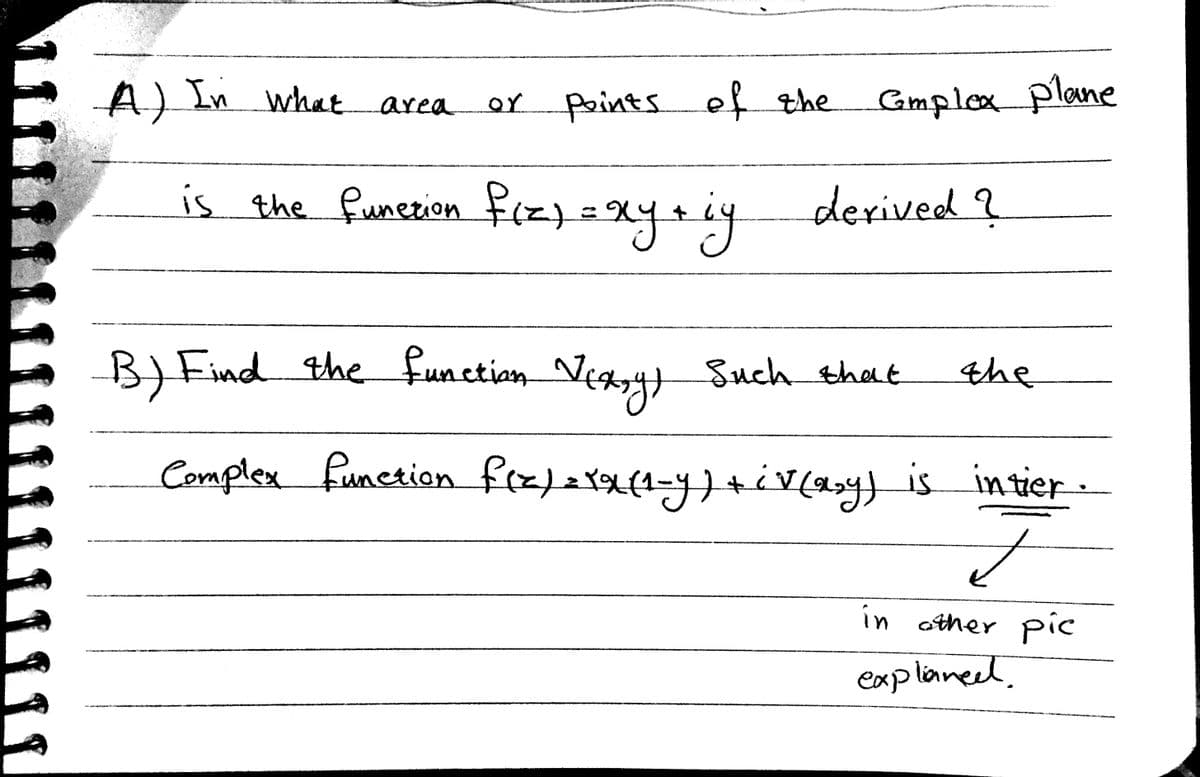 A) In what area or points of the Complex plane
is the function f(z) = xy + iy derived?
B) Find the function V(x,y) Such that the
Complex function f(z) = 2x(1-y) + iV(x,y) is intier.
in other pic
explaned.